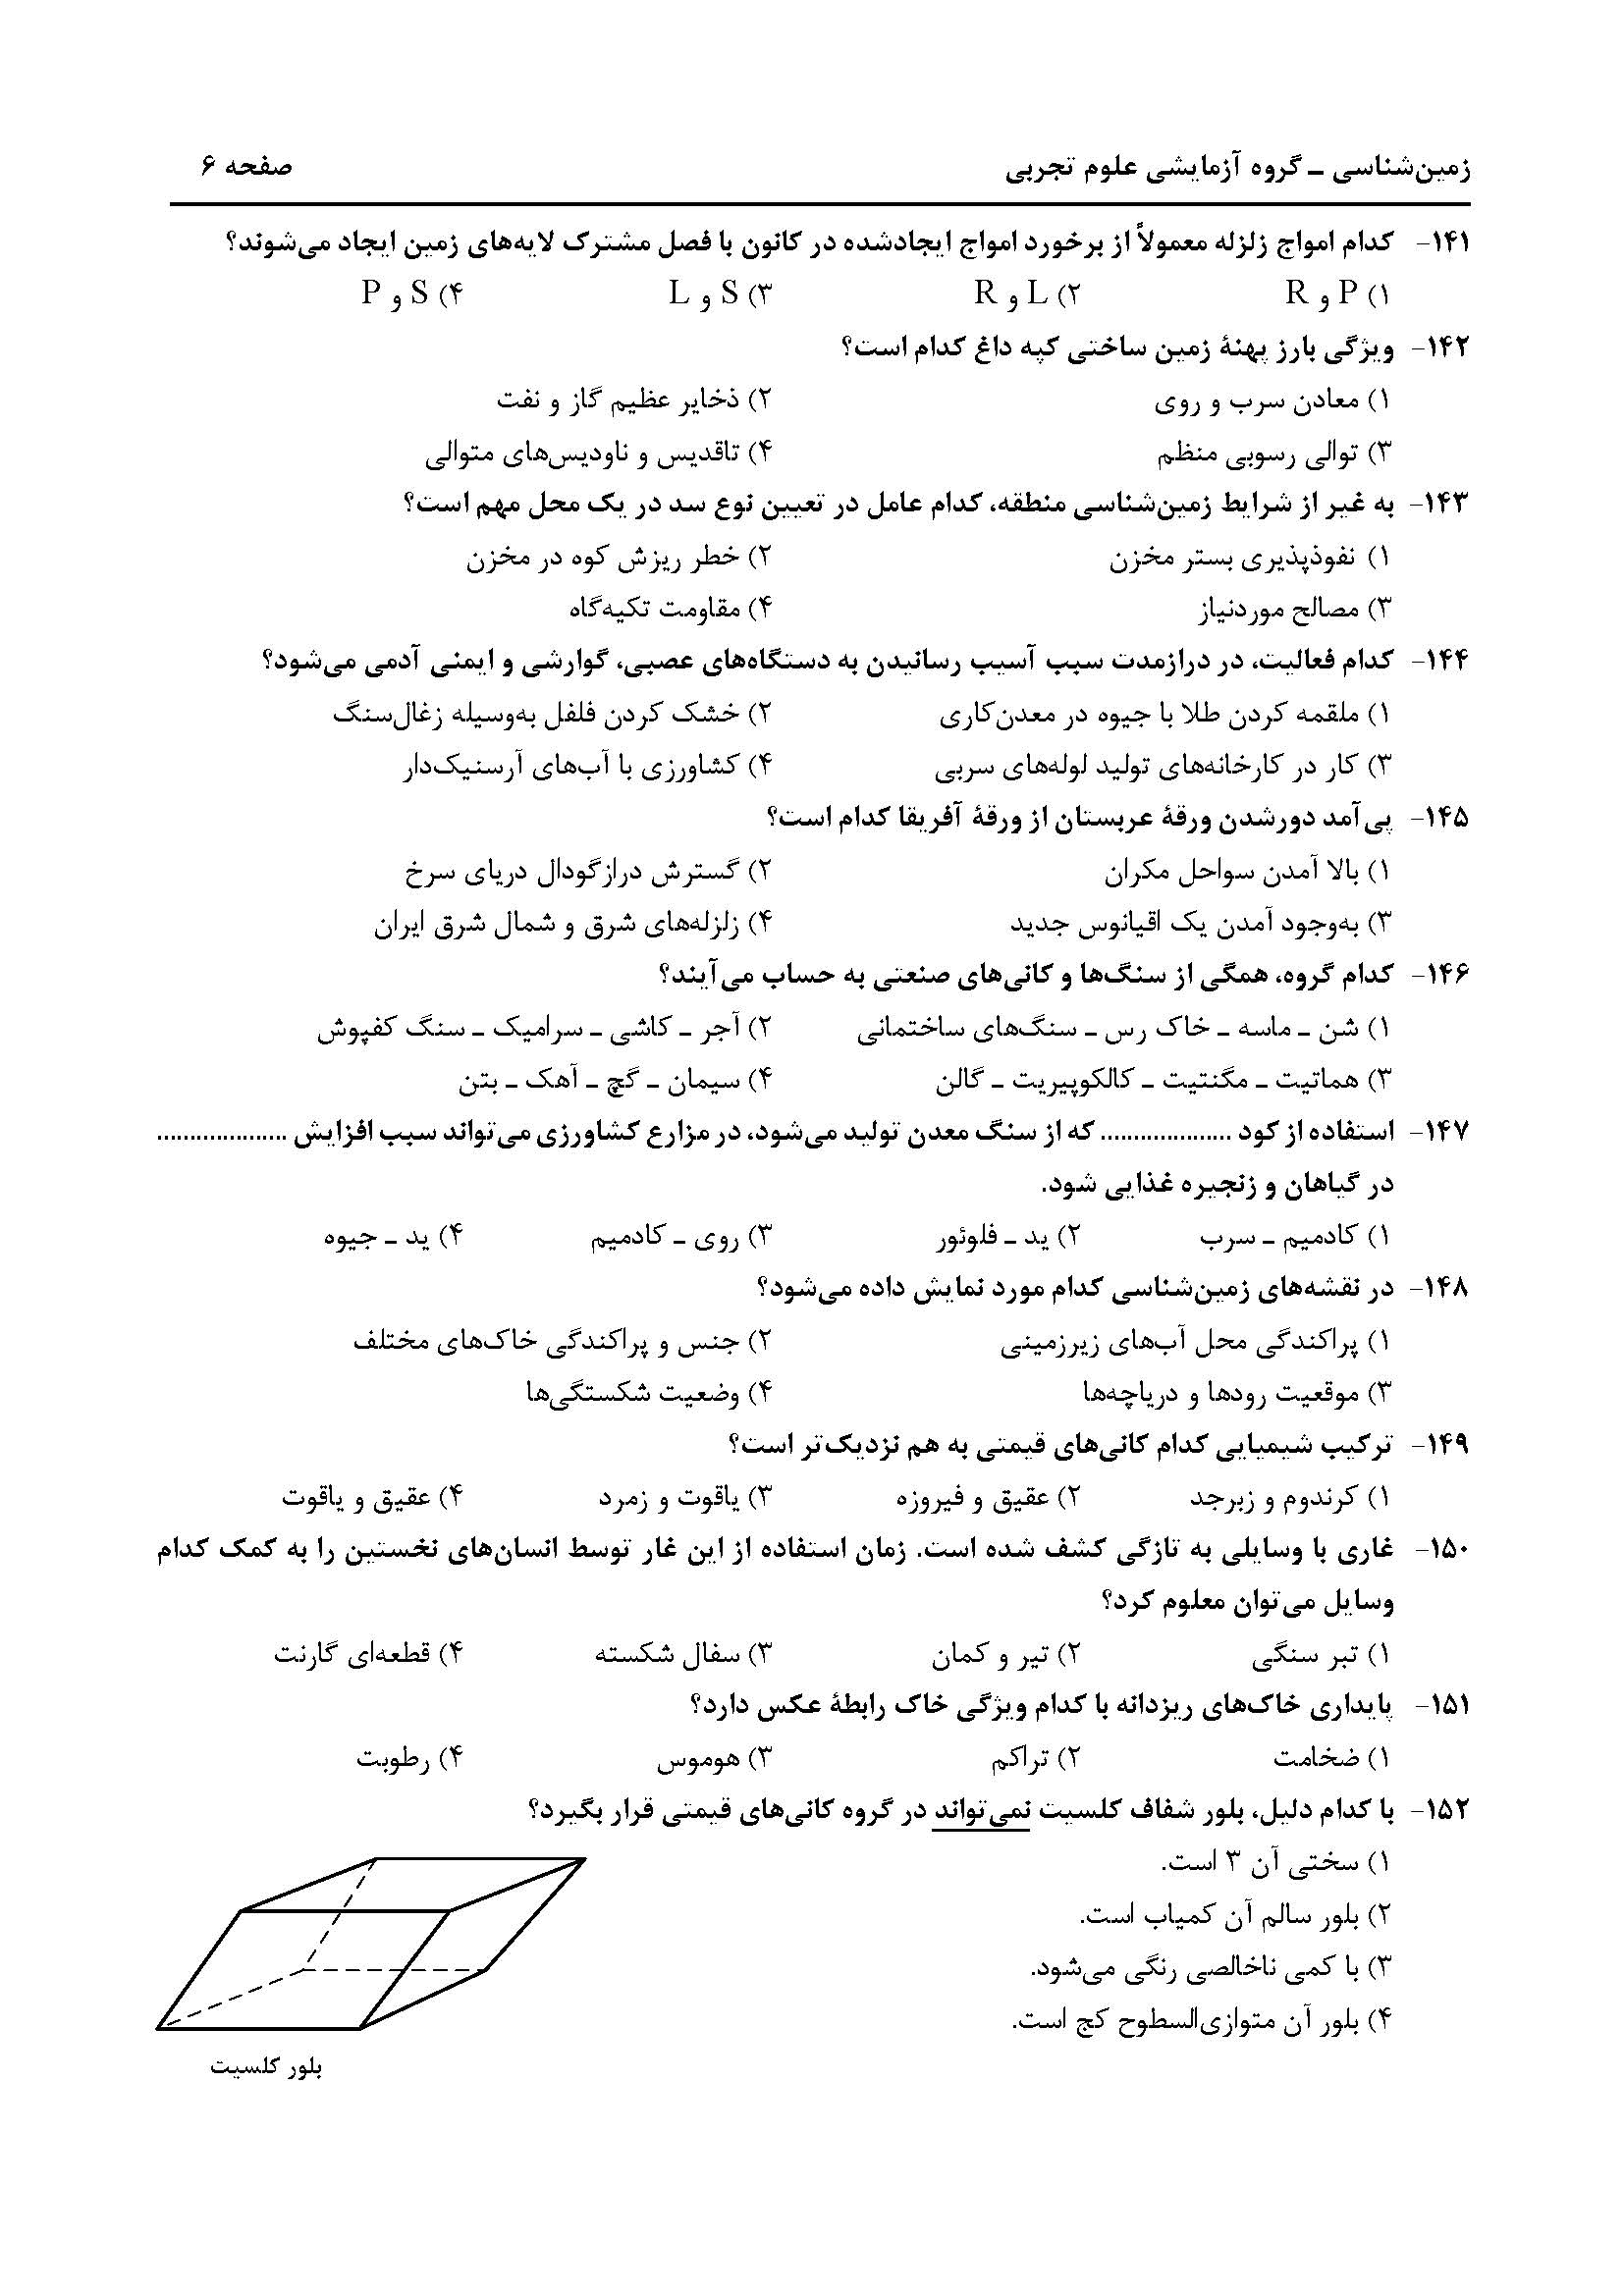 زمین‌شناسی ـ گروه آزمایشی علوم تجربی صفحه ۶
۱۴۱- کدام امواج زلزله معمولاً از برخورد امواج ایجادشده در کانون با فصل مشترک لایه‌های زمین ایجاد می‌شوند؟
۱) P و R ۲) L و R ۳) S و L ۴) S و P
۱۴۲- ویژگی بارز پهنۀ زمین ساختی کپه داغ کدام است؟
۱) معادن سرب و روی ۲) ذخایر عظیم گاز و نفت
۳) توالی رسوبی منظم ۴) تاقدیس و ناودیس‌های متوالی
۱۴۳- به غیر از شرایط زمین‌شناسی منطقه، کدام عامل در تعیین نوع سد در یک محل مهم است؟
۱) نفوذپذیری بستر مخزن ۲) خطر ریزش کوه در مخزن
۳) مصالح موردنیاز ۴) مقاومت تکیه‌گاه
۱۴۴- کدام فعالیت، در درازمدت سبب آسیب رسانیدن به دستگاه‌های عصبی، گوارشی و ایمنی آدمی می‌شود؟
۱) ملقمه کردن طلا با جیوه در معدن‌کاری ۲) خشک کردن فلفل به‌وسیله زغال‌سنگ
۳) کار در کارخانه‌های تولید لوله‌های سربی ۴) کشاورزی با آب‌های آرسنیک‌دار
۱۴۵- پی‌آمد دورشدن ورقۀ عربستان از ورقۀ آفریقا کدام است؟
۱) بالا آمدن سواحل مکران ۲) گسترش درازگودال دریای سرخ
۳) به‌وجود آمدن یک اقیانوس جدید ۴) زلزله‌های شرق و شمال شرق ایران
۱۴۶- کدام گروه، همگی از سنگ‌ها و کانی‌های صنعتی به حساب می‌آیند؟
۱) شن ـ ماسه ـ خاک رس ـ سنگ‌های ساختمانی ۲) آجر ـ کاشی ـ سرامیک ـ سنگ کفپوش
۳) هماتیت ـ مگنتیت ـ کالکوپیریت ـ گالن ۴) سیمان ـ گچ ـ آهک ـ بتن
۱۴۷- استفاده از کود .................... که از سنگ معدن تولید می‌شود، در مزارع کشاورزی می‌تواند سبب افزایش ....................
در گیاهان و زنجیره غذایی شود.
۱) کادمیم ـ سرب ۲) ید ـ فلوئور ۳) روی ـ کادمیم ۴) ید ـ جیوه
۱۴۸- در نقشه‌های زمین‌شناسی کدام مورد نمایش داده می‌شود؟
۱) پراکندگی محل آب‌های زیرزمینی ۲) جنس و پراکندگی خاک‌های مختلف
۳) موقعیت رودها و دریاچه‌ها ۴) وضعیت شکستگی‌ها
۱۴۹- ترکیب شیمیایی کدام کانی‌های قیمتی به هم نزدیک‌تر است؟
۱) کرندوم و زبرجد ۲) عقیق و فیروزه ۳) یاقوت و زمرد ۴) عقیق و یاقوت
۱۵۰- غاری با وسایلی به تازگی کشف شده است. زمان استفاده از این غار توسط انسان‌های نخستین را به کمک کدام
وسایل می‌توان معلوم کرد؟
۱) تبر سنگی ۲) تیر و کمان ۳) سفال شکسته ۴) قطعه‌ای گارنت
۱۵۱- پایداری خاک‌های ریزدانه با کدام ویژگی خاک رابطۀ عکس دارد؟
۱) ضخامت ۲) تراکم ۳) هوموس ۴) رطوبت
۱۵۲- با کدام دلیل، بلور شفاف کلسیت نمی‌تواند در گروه کانی‌های قیمتی قرار بگیرد؟
۱) سختی آن ۳ است.
۲) بلور سالم آن کمیاب است.
۳) با کمی ناخالصی رنگی می‌شود.
۴) بلور آن متوازی‌السطوح کج است.
بلور کلسیت